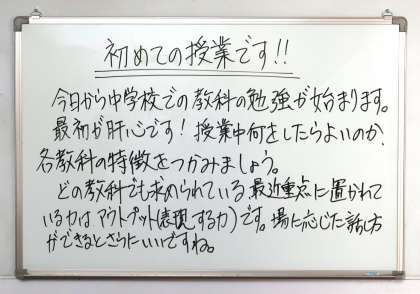 初めての授業です!!
今日から中学校での教科の勉強が始まります。
最初が肝心です！授業中何をしたらよいのか、
各教科の特徴をつかみましょう。
どの教科でも求められている、最近重点に置かれて
いる力は、アウトプット(表現する力)です。場に応じた話し方
ができるとさらにいいですね。